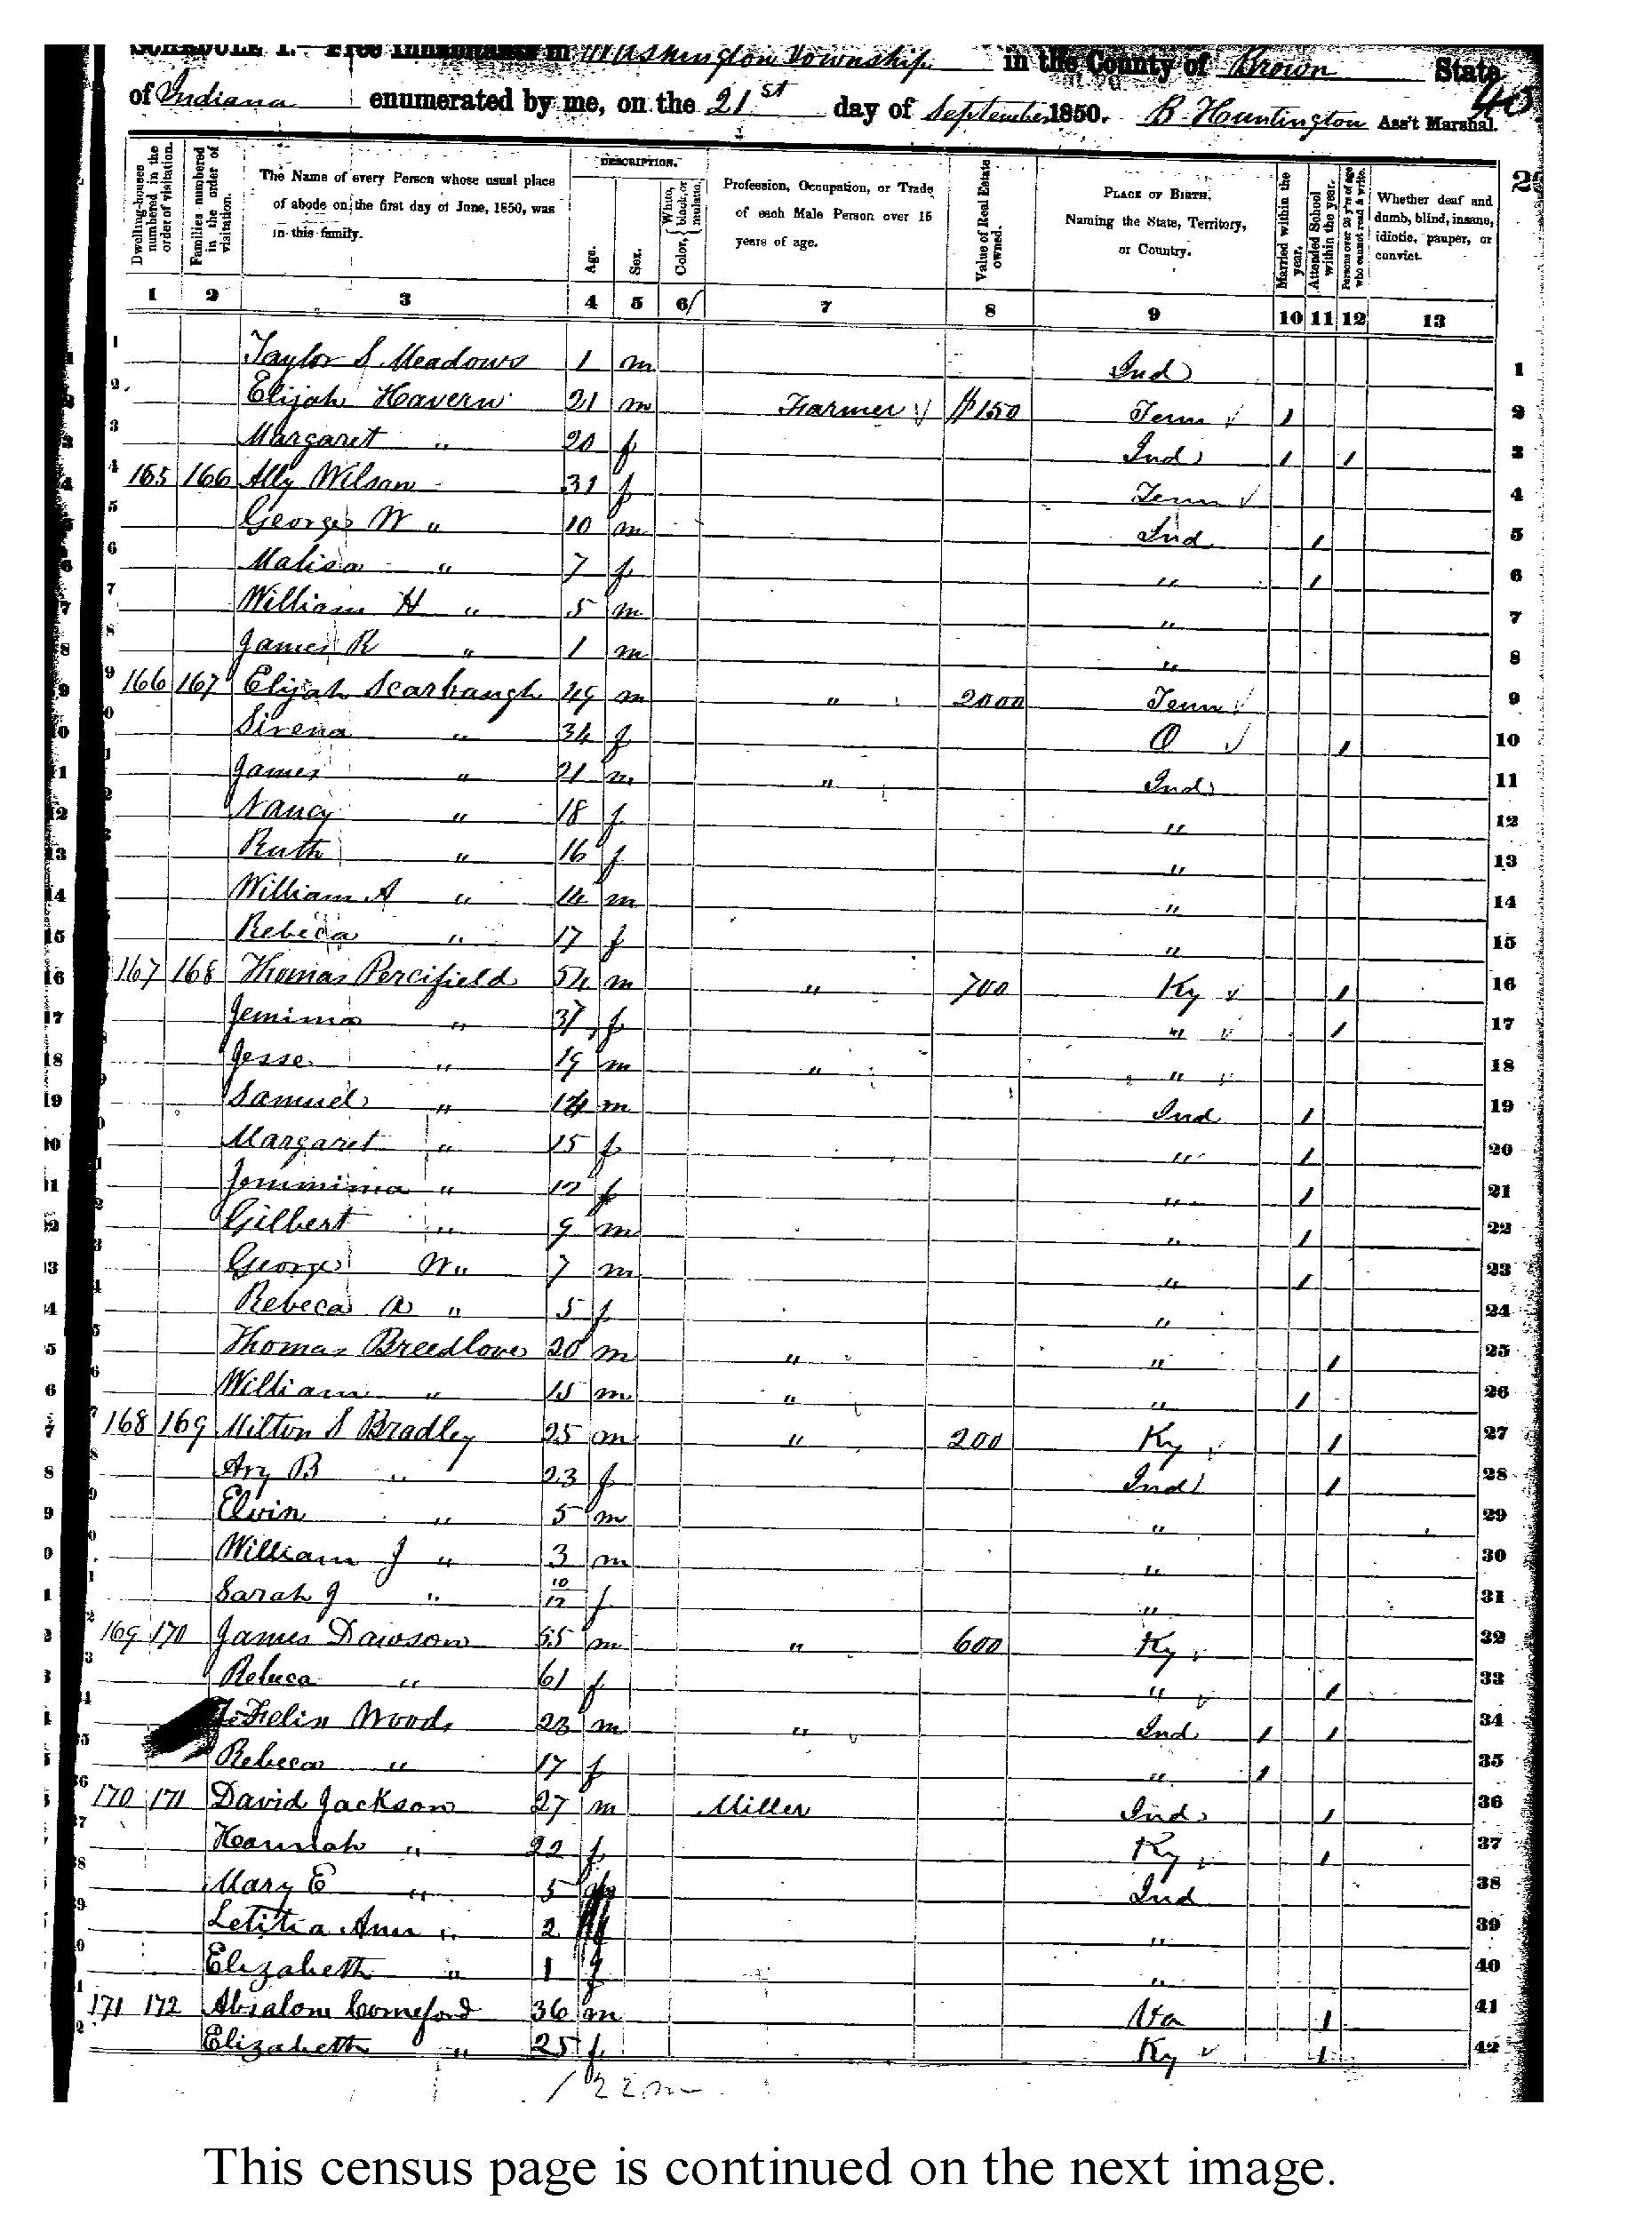 SCHEDULE I.—Free Inhabitants in Washington Township in the County of Brown State
of Indiana enumerated by me, on the 21st day of September 1850. B. Huntington Ass't Marshal.
40
Dwelling-houses numbered in the order of visitation. Families numbered in the order of visitation. The Name of every Person whose usual place of abode on the first day of June, 1850, was in this family. DESCRIPTION. Age. Sex. Color, { White, black, or mulatto. Profession, Occupation, or Trade of each Male Person over 15 years of age. Value of Real Estate owned. PLACE OF BIRTH, Naming the State, Territory, or Country. Married within the year. Attended School within the year. Persons over 20 y's of age who cannot read & write. Whether deaf and dumb, blind, insane, idiotic, pauper, or convict. 2
1 2 3 4 5 6 7 8 9 10 11 12 13
1 Taylor S Meadows 1 m Ind 1
2 Elijah Havern 21 m Farmer $150 Tenn 1 2
3 Margaret " 20 f Ind 1 1 3
4 165 166 Ally Wilson 31 f Tenn 4
5 George W " 10 m Ind 1 5
6 Malisa " 7 f " 1 6
7 William H " 5 m " 7
8 James R " 1 m " 8
9 166 167 Elijah Scarbaugh 49 m " 2000 Tenn 9
10 Sirena " 34 f O 1 10
11 James " 21 m " Ind 11
12 Nancy " 18 f " 12
13 Ruth " 16 f " 13
14 William A " 14 m " 14
15 Rebeca " 17 f " 15
16 167 168 Thomas Percifield 54 m " 700 Ky 1 16
17 Jemima " 37 f " 1 17
18 Jesse " 19 m " " 18
19 Samuel " 14 m Ind 1 19
20 Margaret " 15 f " 1 20
21 Jemimima " 12 f " 1 21
22 Gilbert " 9 m " 1 22
23 George W " 7 m " 1 23
24 Rebeca " 5 f " 24
25 Thomas Breedlove 20 m " " 1 25
26 William " 15 m " " 1 26
27 168 169 Milton S Bradley 25 m " 200 Ky 1 27
28 Ary B " 23 f Ind 1 28
29 Elvin " 5 m " 29
30 William J " 3 m " 30
31 Sarah J " 10/12 f " 31
32 169 170 James Dawson 55 m " 600 Ky 32
33 Rebeca " 61 f " 1 33
34 Felix Woods 23 m " Ind 1 1 34
35 Rebecca " 17 f " 1 35
36 170 171 David Jackson 27 m Miller Ind 1 36
37 Hannah " 22 f Ky 1 37
38 Mary E " 5 Ind 38
39 Letitia Ann " 2 f " 39
40 Elizabeth " 1 f " 40
41 171 172 Absalom Comeford 36 m Va 1 41
42 Elizabeth " 25 f Ky 1 42
22 m
This census page is continued on the next image.